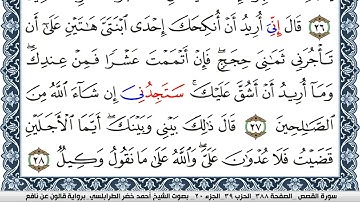 ٢٦ قَالَ إِنِّيَ أُرِيدُ أَنْ أُنكِحَكَ إِحْدَى اَبْنَتَيَّ هَٰتَيْنِ عَلَىٰ أَن
تَأْجُرَنِي ثَمَٰنِيَ حِجَجٖ فَإِنْ أَتْمَمْتَ عَشْراٗ فَمِنْ عِندِكَ
وَمَا أُرِيدُ أَنْ أَشُقَّ عَلَيْكَ سَتَجِدُنِيَ إِن شَاءَ اَللَّهُ مِنَ
اَلصَّٰلِحِينَ ٢٧ قَالَ ذَٰلِكَ بَيْنِي وَبَيْنَكَ أَيَّمَا اَلْأَجَلَيْنِ
قَضَيْتُ فَلَا عُدْوَٰنَ عَلَيَّ وَاللَّهُ عَلَىٰ مَا نَقُولُ وَكِيلٞ ٢٨
سورة القصص . الصفحة ٣٨٨ . الحزب ٣٩ . الجزء ٢٠ . بصوت الشيخ أحمد خضر الطرابلسي . برواية قالون عن نافع